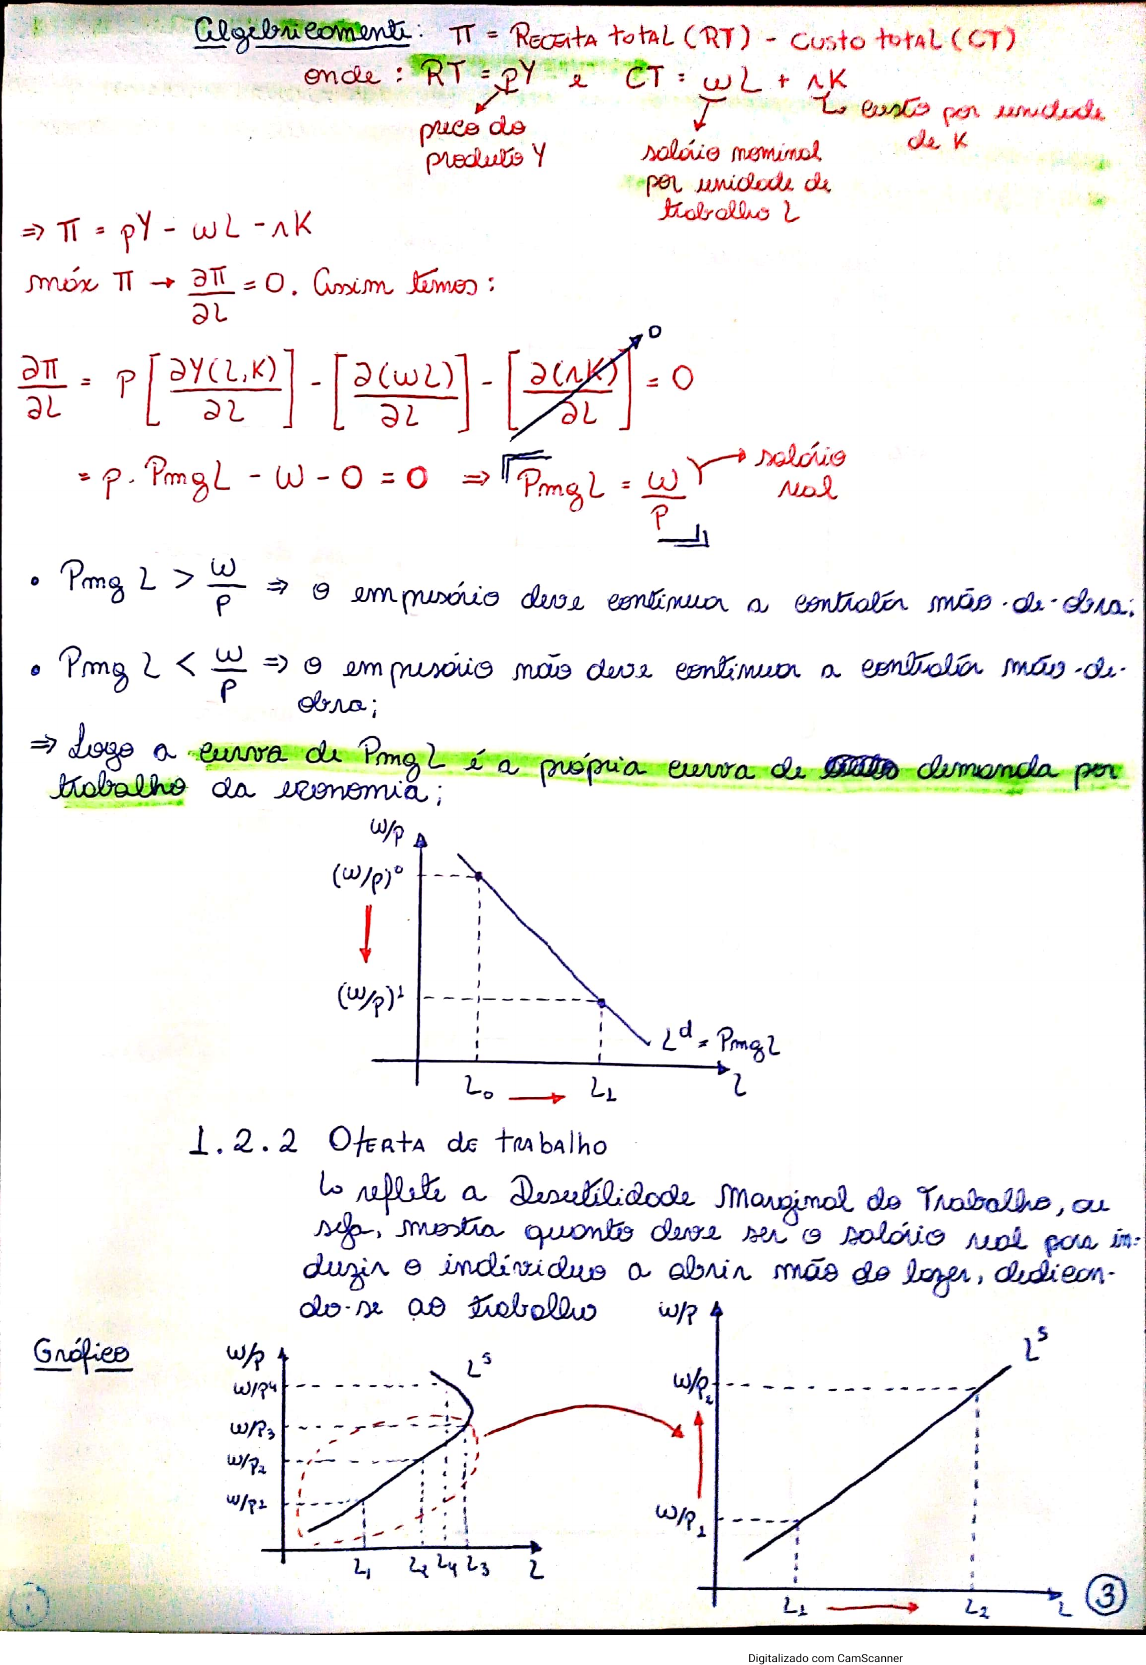 Algebricamente: π = RECEITA TOTAL (RT) - CUSTO TOTAL (CT)
onde: RT = pY e CT = wL + rK
preço do produto Y
salário nominal por unidade de trabalho L
custo por unidade de K
⇒ π = pY - wL - rK
máx π → ∂π/∂L = 0. Assim temos:
∂π/∂L = P [∂Y(L,K)/∂L] - [∂(wL)/∂L] - [∂(rK)/∂L] = 0
0
= p. PmgL - W - 0 = 0 ⇒ PmgL = w/P → salário real
• PmgL > w/P ⇒ o empresário deve continuar a contratar mão-de-obra;
• PmgL < w/P ⇒ o empresário não deve continuar a contratar mão-de-
obra;
⇒ Logo a curva de PmgL é a própria curva de demanda por
trabalho da economia;
w/p
(w/p)⁰
(w/p)¹
Lᵈ = PmgL
L₀ → L₁ L
1.2.2 OFERTA DE TRABALHO
↳ reflete a Desutilidade Marginal do Trabalho, ou
seja, mostra quanto deve ser o salário real para in-
duzir o indivíduo a abrir mão do lazer, dedican-
do-se ao trabalho
Gráfico
w/p
Lˢ
w/p4
w/p3
w/p2
w/p1
L₁ L₂ L₄ L₃ L
w/p
Lˢ
w/p₂
w/p₁
L₁ → L₂ L
3
Digitalizado com CamScanner